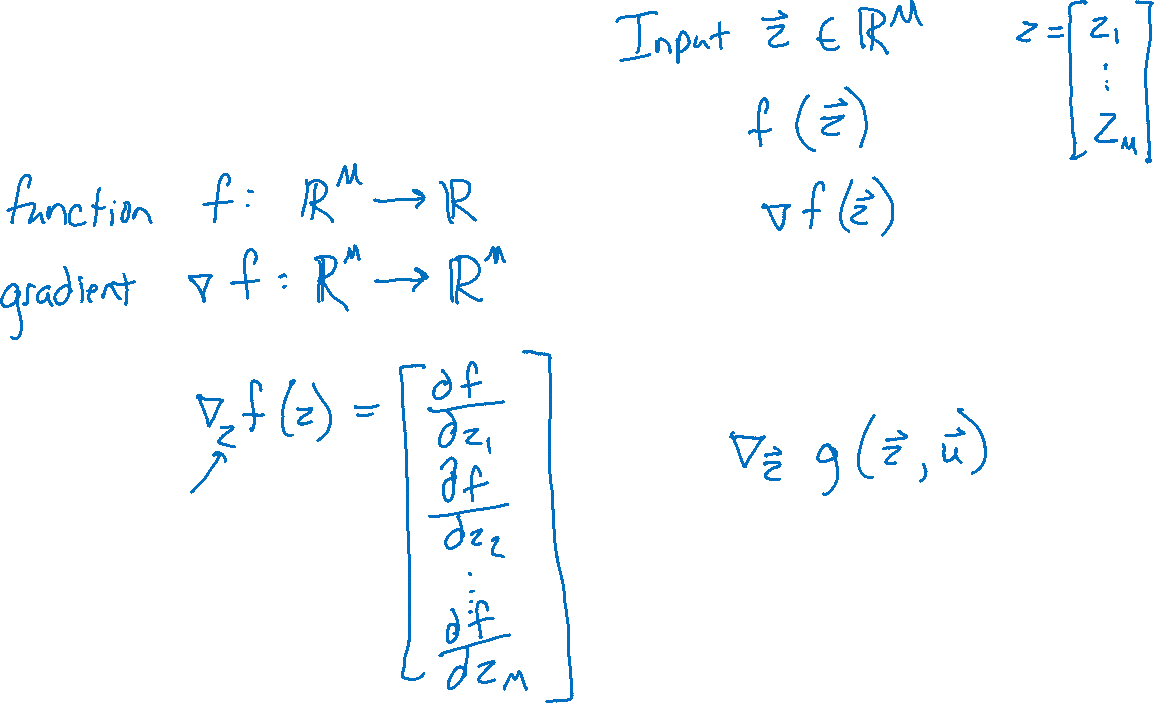 Input \vec{z} ∈ ℝ^M    z = [z_1 ⋮ z_M]
f(\vec{z})
∇f(\vec{z})
function f: ℝ^M → ℝ
gradient ∇f: ℝ^M → ℝ^M
∇_z f(z) = [∂f/∂z_1 ∂f/∂z_2 ⋮ ∂f/∂z_M]
∇_{\vec{z}} g(\vec{z}, \vec{u})